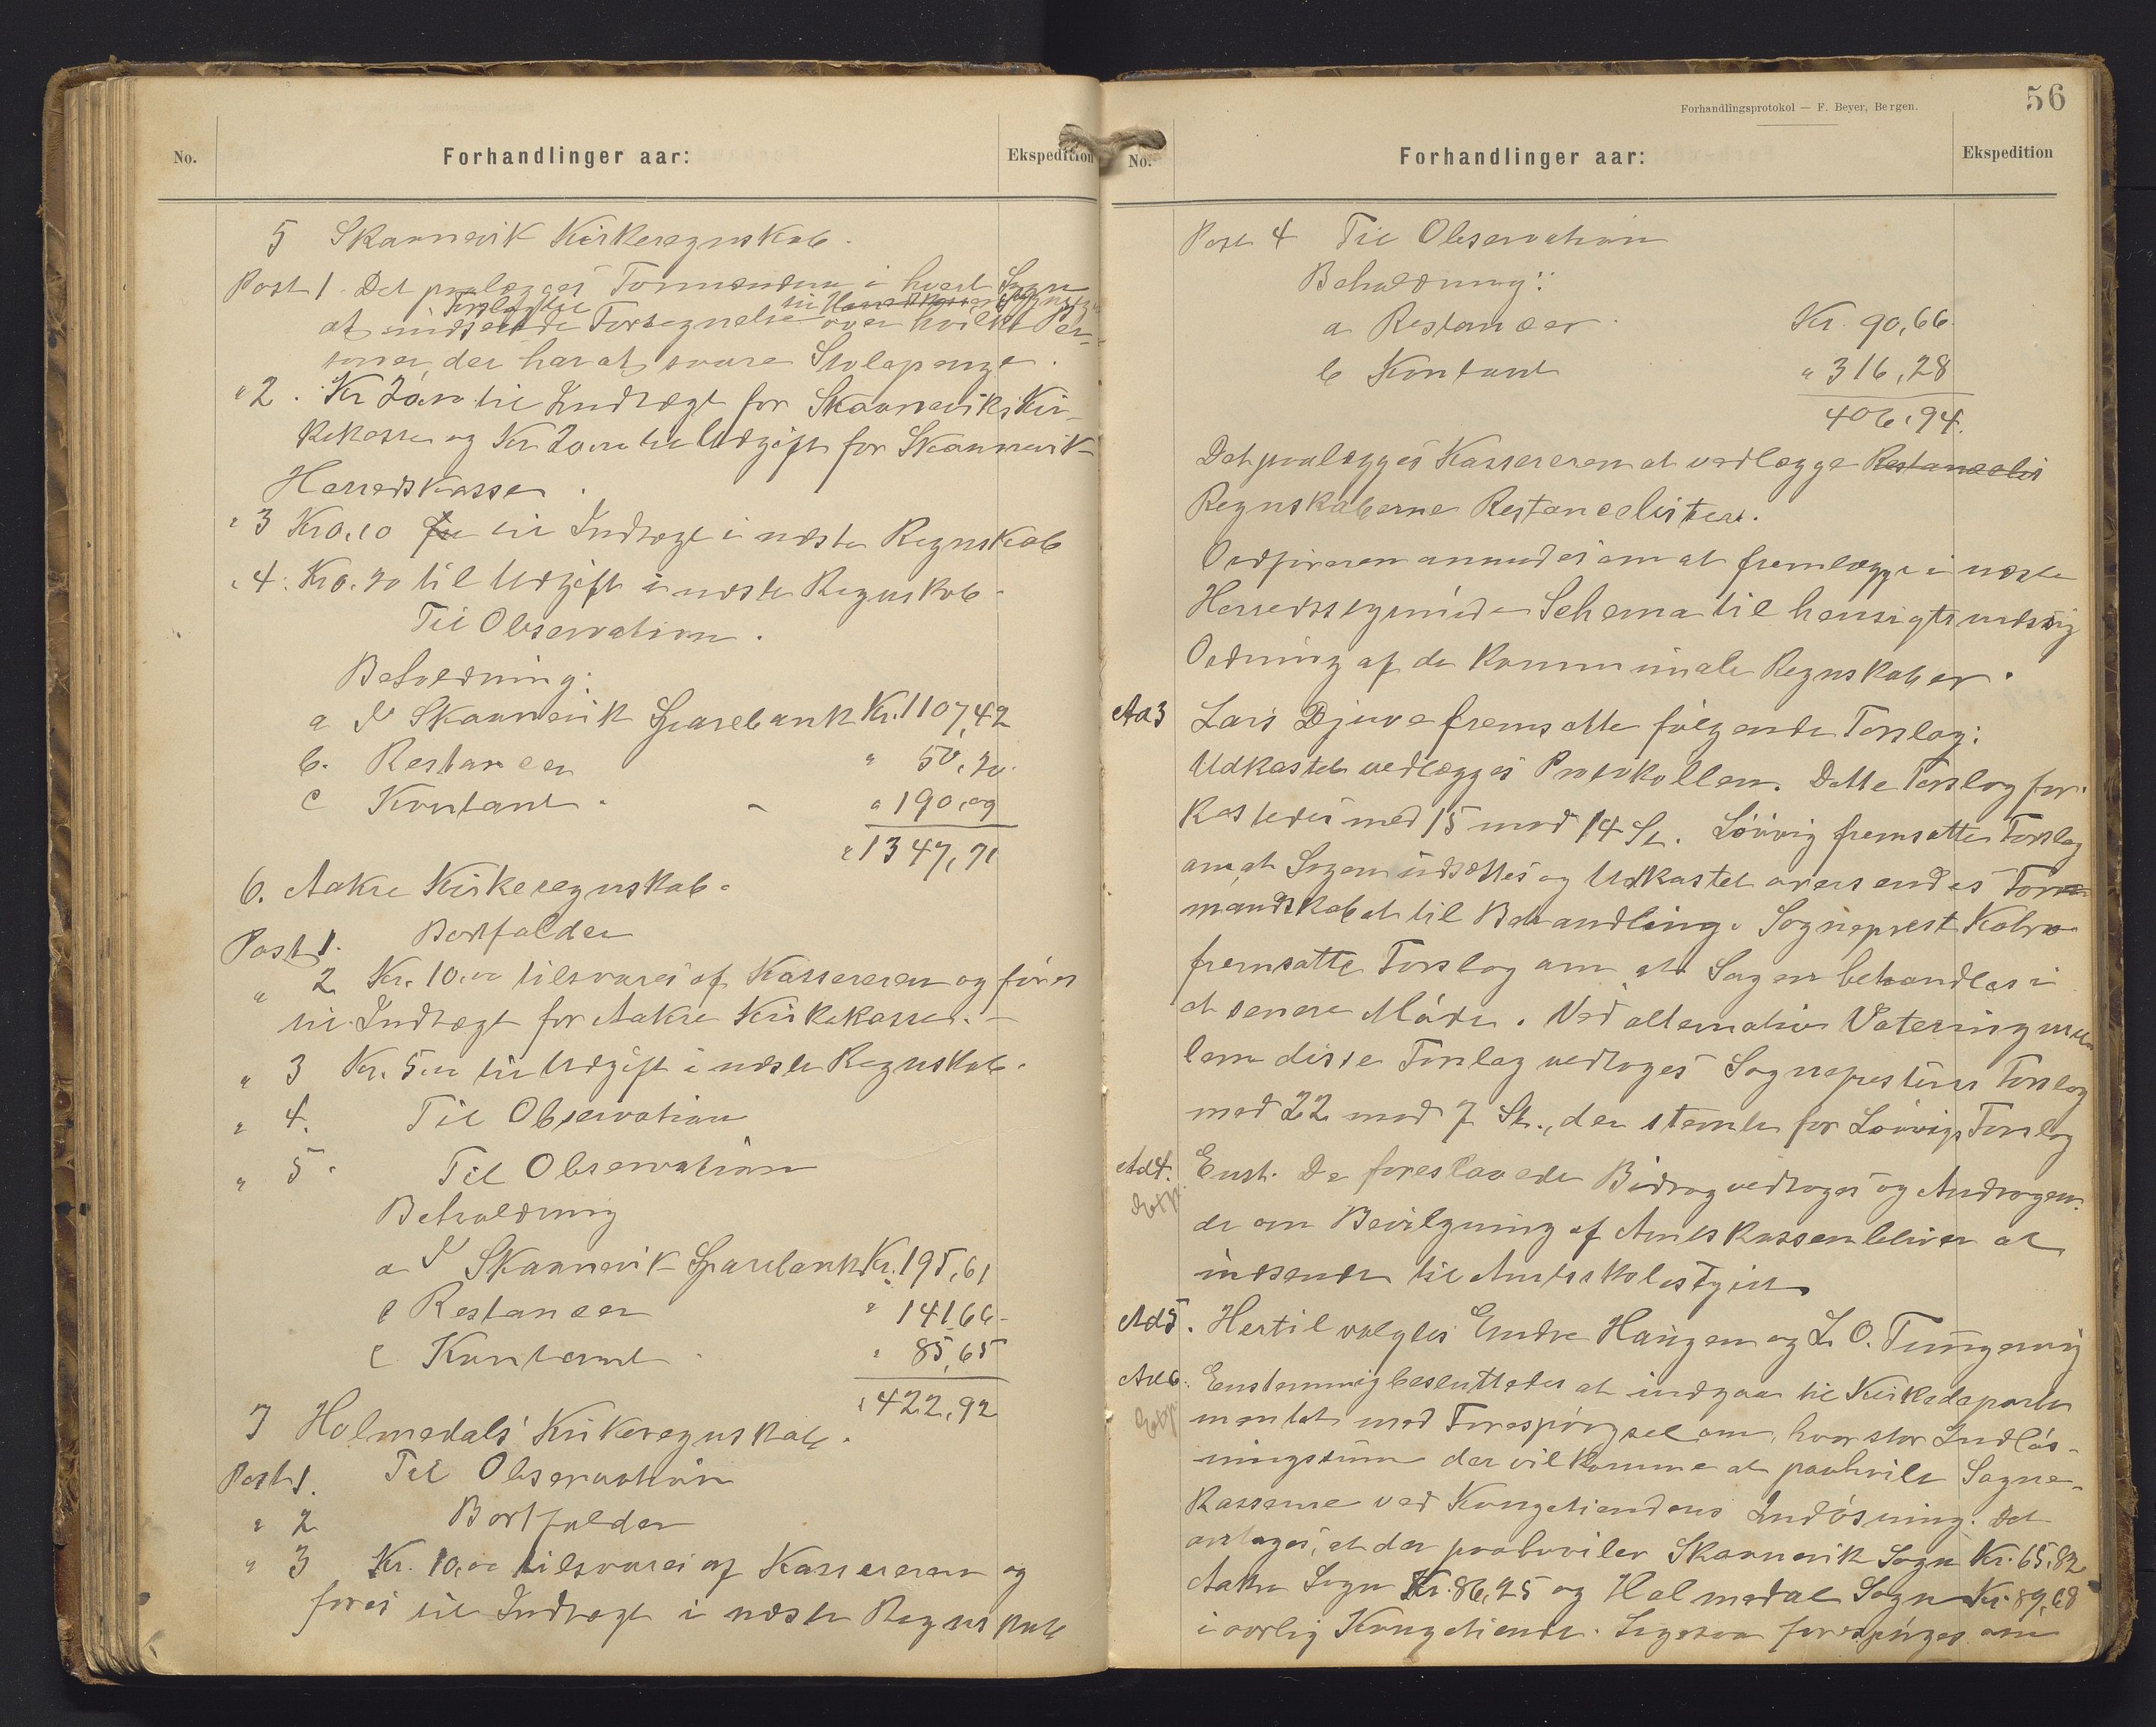 No.
Forhandlinger aar:
Ekspedition
5 Skaanevik Kirkeregnskab.
Post 1. Det paalægges Formændene i hvert Sogn
Forslag til
at indsende Fortegnelse over hvilke Per-
soner, der har at svare Stolepenge.
" 2. Kr 20.00 til Indtægt for Skaaneviks Kir-
kekasse og Kr 20.00 til Udgift for Skaanevik
Herredskasse.
" 3 Kr 0.10 til Indtægt i næste Regnskab
" 4. Kr 0.70 til Udgift i næste Regnskab.
Til Observation.
Beholdning:
a I Skaanevik Sparebank Kr. 1107,42
b. Restancer " 50,20.
c Kontant. " 190,09
" 1347,71
6. Aakre Kirkeregnskab.
Post 1. Bortfalder
" 2 Kr. 10.00 tilsvares af Kassereren og føres
til Indtægt for Aakre Kirkekasse.
" 3 Kr. 5.00 til Udgift i næste Regnskab.
" 4. Til Observation
" 5. Til Observation
Beholdning
a I Skaanevik Sparebank Kr. 195,61
b Restancer " 141,66
c Kontant " 85,65
" 422,92
7 Holmedals Kirkeregnskab.
Post 1. Til Observation
" 2 Bortfalder
" 3 Kr. 10.00 tilsvares af Kassereren og
føres til Indtægt i næste Regnskab
Forhandlingsprotokol — F. Beyer, Bergen.
56
No.
Forhandlinger aar:
Ekspedition
Post 4 Til Observation
Beholdning:
a Restancer. Kr. 90,66.
b Kontant " 316,28
406,94.
Det paalægges Kassereren at vedlægge Restancelis
Regnskaberne Restancelister.
Ordføreren anmodes om at fremlægge i næste
Herredsstyrmøde Schema til hensigtsmæssig
Ordning af de kommunale Regnskaber.
Ad 3 Lars Djuve fremsatte følgende Forslag:
Udkastet vedlægges Protokollen. Dette Forslag for-
kastedes med 15 mod 14 St. Løvvig fremsatte Forslag
om, at Sagen udsættes og Udkastet oversendes For-
mandskabet til Behandling. Sogneprest Kobro
fremsatte Forslag om at Sagen behandles i
et senere Møde. Ved alternativ Votering mel
lem disse Forslag vedtoges Sogneprestens Forslag
med 22 mod 7 St., der stemte for Løvvigs Forslag
Ad 4. Enst. De foreslaaede Bidrag vedtoges og Andragen-
de om Bevilgning af Amtskassen bliver at
indsende til Amtsskolestyret
Ad 5. Hertil valgtes Endre Haugen og L. O. Tungesvig
Ad 6. Enstemmig besluttedes at indgaa til Kirkedeparte
mentet med Forespørgsel om, hvor stor Indløs-
ningssum der vil komme at paahvile Sogne-
kasserne ved Kongetiendens Indløsning. Det
antages, at der paahviler Skaanevik Sogn Kr. 65.82
Aakre Sogn Kr. 86,25 og Holmedal Sogn Kr. 89,68
i aarlig Kongetiende. Ligesaa forespørges om